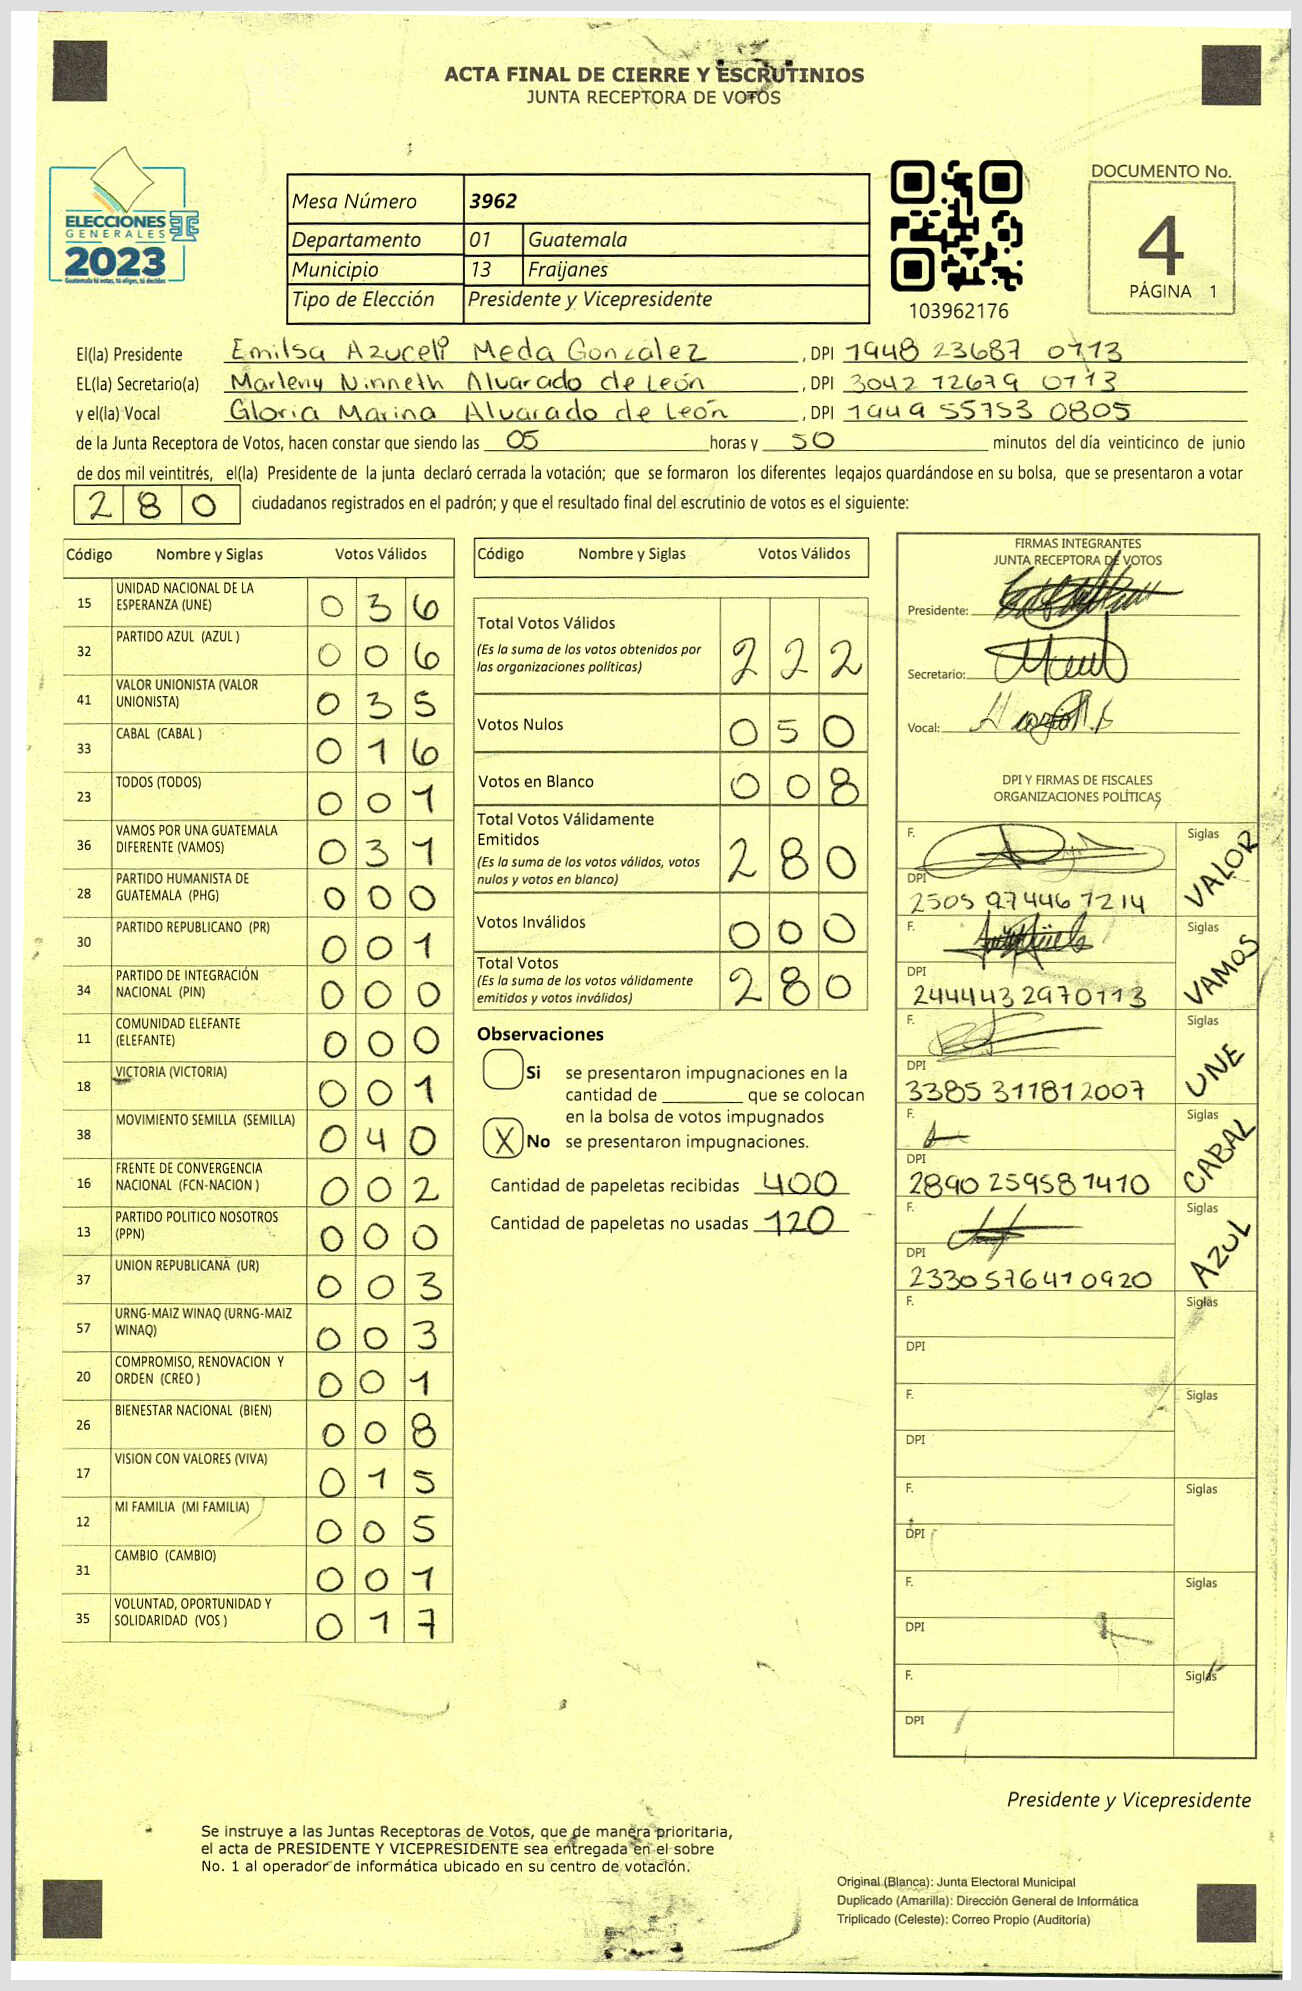 ACTA FINAL DE CIERRE Y ESCRUTINIOS
JUNTA RECEPTORA DE VOTOS
ELECCIONES
GENERALES
2023
Guatemala tú votas, tú eliges, tú decides
Mesa Número 3962
Departamento 01 Guatemala
Municipio 13 Fraijanes
Tipo de Elección Presidente y Vicepresidente
103962176
DOCUMENTO No.
4
PÁGINA 1
El(la) Presidente Emilsa Azuceli Meda Gonzalez, DPI 1948 23687 0113
EL(la) Secretario(a) Marleny Ninneth Alvarado de León, DPI 3042 12679 0113
y el(la) Vocal Gloria Marina Alvarado de León, DPI 1949 55753 0805
de la Junta Receptora de Votos, hacen constar que siendo las 05 horas y 50 minutos del día veinticinco de junio
de dos mil veintitrés, el(la) Presidente de la junta declaró cerrada la votación; que se formaron los diferentes legajos guardándose en su bolsa, que se presentaron a votar
280 ciudadanos registrados en el padrón; y que el resultado final del escrutinio de votos es el siguiente:
Código Nombre y Siglas Votos Válidos
15 UNIDAD NACIONAL DE LA ESPERANZA (UNE) 0 3 6
32 PARTIDO AZUL (AZUL ) 0 0 6
41 VALOR UNIONISTA (VALOR UNIONISTA) 0 3 5
33 CABAL (CABAL ) 0 1 6
23 TODOS (TODOS) 0 0 1
36 VAMOS POR UNA GUATEMALA DIFERENTE (VAMOS) 0 3 1
28 PARTIDO HUMANISTA DE GUATEMALA (PHG) 0 0 0
30 PARTIDO REPUBLICANO (PR) 0 0 1
34 PARTIDO DE INTEGRACIÓN NACIONAL (PIN) 0 0 0
11 COMUNIDAD ELEFANTE (ELEFANTE) 0 0 0
18 VICTORIA (VICTORIA) 0 0 1
38 MOVIMIENTO SEMILLA (SEMILLA) 0 4 0
16 FRENTE DE CONVERGENCIA NACIONAL (FCN-NACION ) 0 0 2
13 PARTIDO POLITICO NOSOTROS (PPN) 0 0 0
37 UNION REPUBLICANA (UR) 0 0 3
57 URNG-MAIZ WINAQ (URNG-MAIZ WINAQ) 0 0 3
20 COMPROMISO, RENOVACION Y ORDEN (CREO ) 0 0 1
26 BIENESTAR NACIONAL (BIEN) 0 0 8
17 VISION CON VALORES (VIVA) 0 1 5
12 MI FAMILIA (MI FAMILIA) 0 0 5
31 CAMBIO (CAMBIO) 0 0 1
35 VOLUNTAD, OPORTUNIDAD Y SOLIDARIDAD (VOS ) 0 1 7
Código Nombre y Siglas Votos Válidos
Total Votos Válidos 2 2 2
(Es la suma de los votos obtenidos por
las organizaciones políticas)
Votos Nulos 0 5 0
Votos en Blanco 0 0 8
Total Votos Válidamente
Emitidos 2 8 0
(Es la suma de los votos válidos, votos
nulos y votos en blanco)
Votos Inválidos 0 0 0
Total Votos 2 8 0
(Es la suma de los votos válidamente
emitidos y votos inválidos)
Observaciones
Si se presentaron impugnaciones en la
cantidad de ________ que se colocan
en la bolsa de votos impugnados
X No se presentaron impugnaciones.
Cantidad de papeletas recibidas 400
Cantidad de papeletas no usadas 120
FIRMAS INTEGRANTES
JUNTA RECEPTORA DE VOTOS
Presidente:
Secretario:
Vocal:
DPI Y FIRMAS DE FISCALES
ORGANIZACIONES POLÍTICAS
F. Siglas VALOR
DPI
2505 97446 1214
F. Siglas VAMOS
DPI
2444432970113
F. Siglas UNE
DPI
3385 311812007
F. Siglas CABAL
DPI
2890 259581410
F. Siglas AZUL
DPI
2330576410920
F. Siglas
DPI
F. Siglas
DPI
F. Siglas
DPI
F. Siglas
DPI
F. Siglas
DPI
Presidente y Vicepresidente
Se instruye a las Juntas Receptoras de Votos, que de manera prioritaria,
el acta de PRESIDENTE Y VICEPRESIDENTE sea entregada en el sobre
No. 1 al operador de informática ubicado en su centro de votación.
Original (Blanca): Junta Electoral Municipal
Duplicado (Amarilla): Dirección General de Informática
Triplicado (Celeste): Correo Propio (Auditoría)